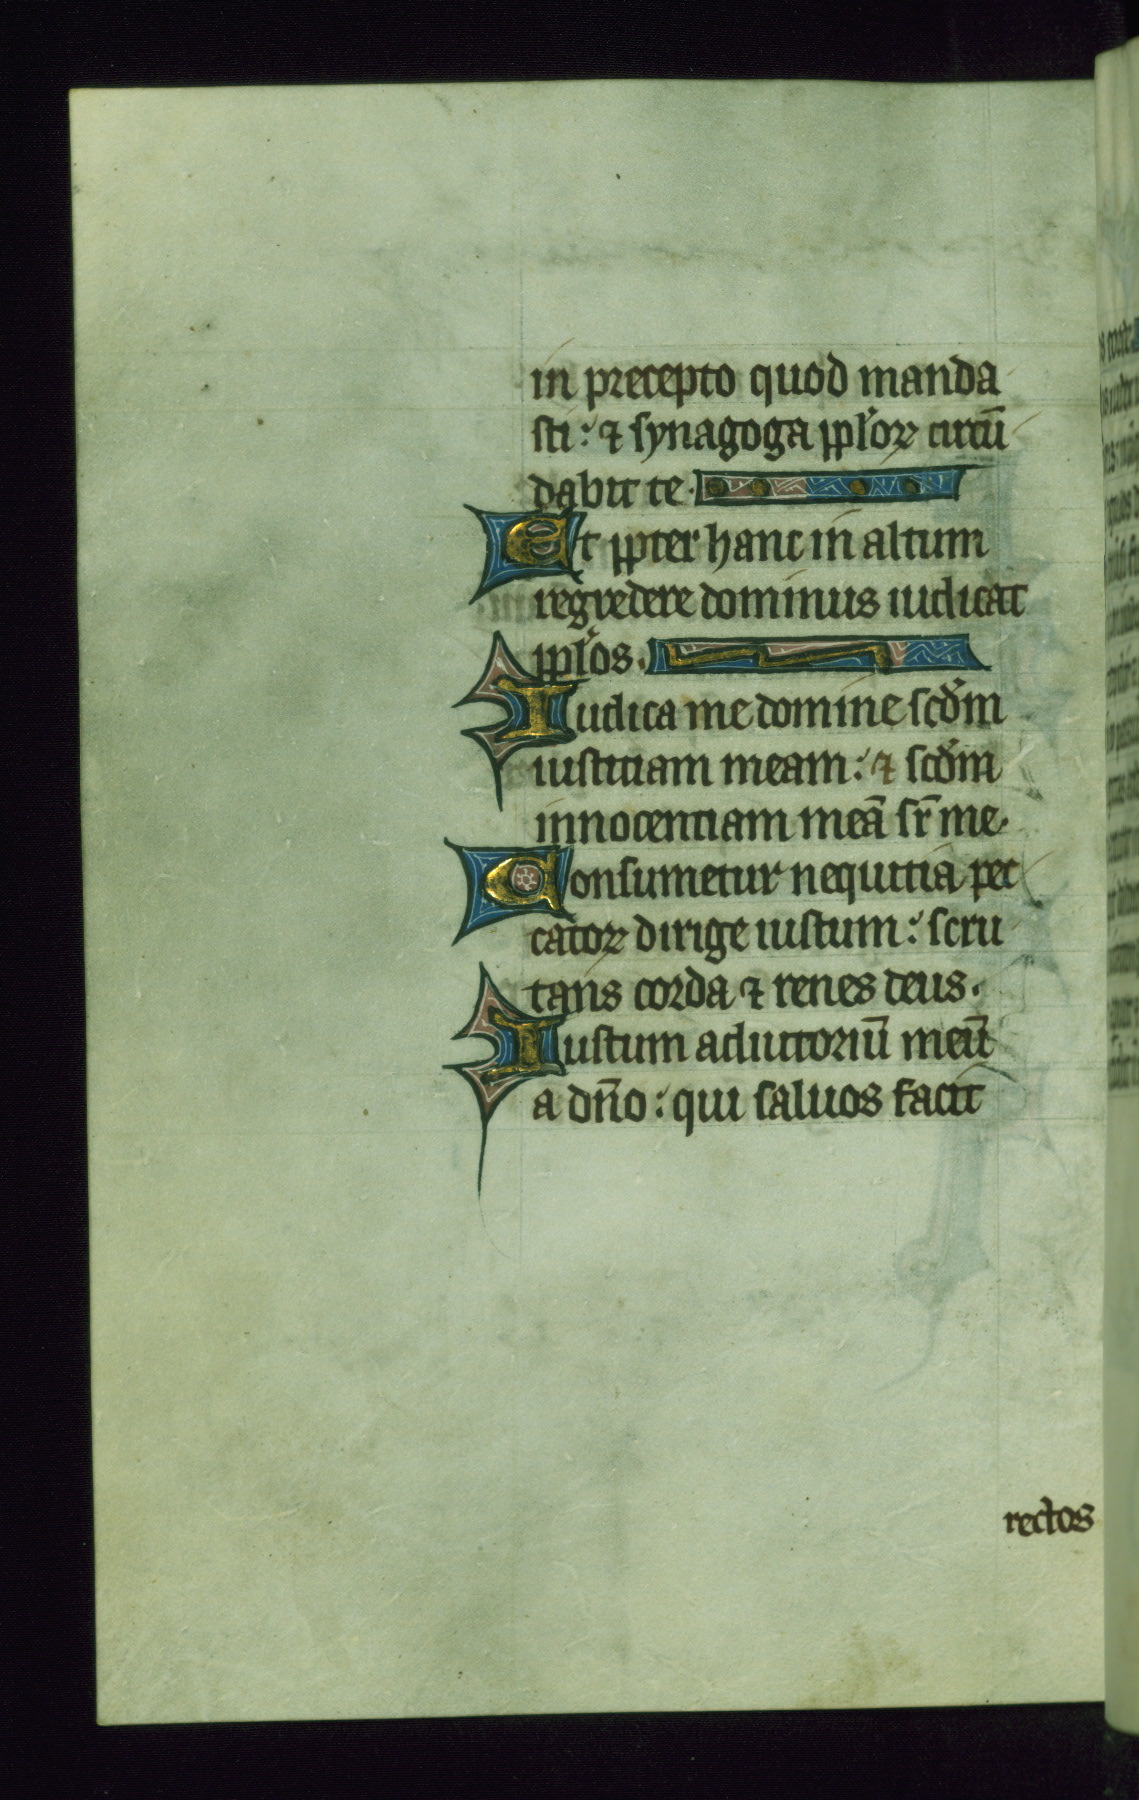 in precepto quod manda
sti: ⁊ synagoga pploꝝ circū
dabit te.
Et ꝓpter hanc in altum
regredere dominus iudicat
pplos.
Iudica me domine scdm
iustitiam meam: ⁊ scdm
innocentiam meā sr̄ me.
Consumetur nequitia pec
catoꝝ dirige iustum: scru
tans corda ⁊ renes deus.
Iustum adiutoriū meū
a dn̄o: qui saluos facit
rectos